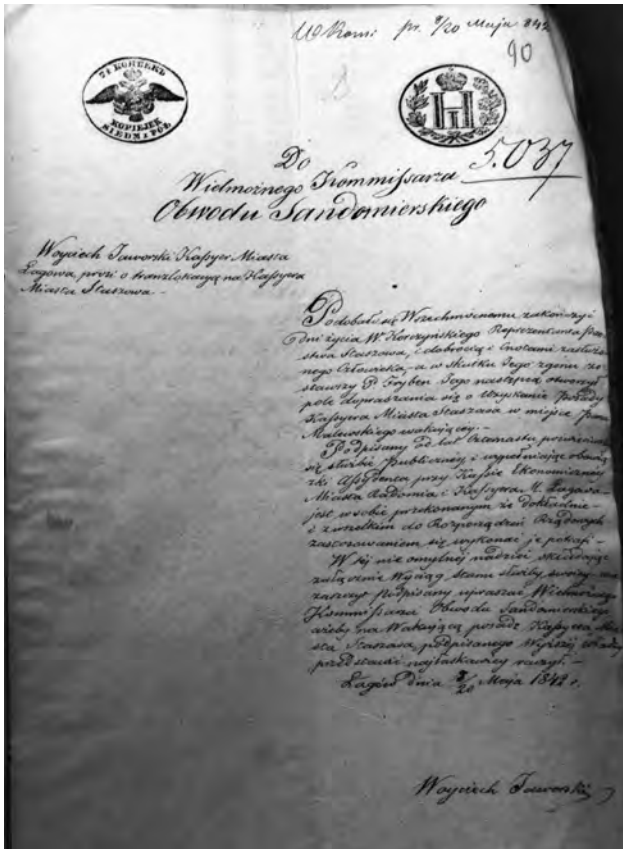 pr. 8/20 Maja 842
90
7½ KOП.
KOPIEJEK
SIEDM I PÓŁ
H I
5.037
Do
Wielmożnego Kommissarza
Obwodu Sandomierskiego
Woyciech Jaworski Kassyer Miasta
Łagowa, prosi o translokacyą na Kassyera
Miasta Staszowa –
Podobało się Wszechmocnemu zakończyć
dni życia W. Korczyńskiego Reprezentanta Pań-
stwa Staszowa, z dobrocią i Cnotami zasłużo-
nego Człowieka, a w skutku Jego zgonu zo-
stawszy P. Gryben Jego następcą otworzył
pole dopraszania się o Uzyskanie Posady
Kassyera Miasta Staszowa w miejsce Pana
Malewskiego wakującey. –
Podpisany od lat poświęciwszy
się służbie publiczney i wypełniając obowią-
zki Assystenta przy Kassie Ekonomiczney
Miasta Radomia i Kassyera M. Łagowa
jest w sobie przekonanym że dokładnie
i z wszelkim do Rozporządzeń Rządowych
zastosowaniem się wykonać je potrafi –
W tej nie omylney nadziei składając
załącznie Wyciąg stanu służby swojey ma
zaszczyt Podpisany upraszać Wielmożnego
Kommissarza Obwodu Sandomierskiego
ażeby na Wakującą posadę Kassyera Mia-
sta Staszowa podpisanego Wyższej Władzy
przedstawić najłaskawiey raczył. –
Łagów dnia 8/20 Maja 1842 r.
Woyciech Jaworski